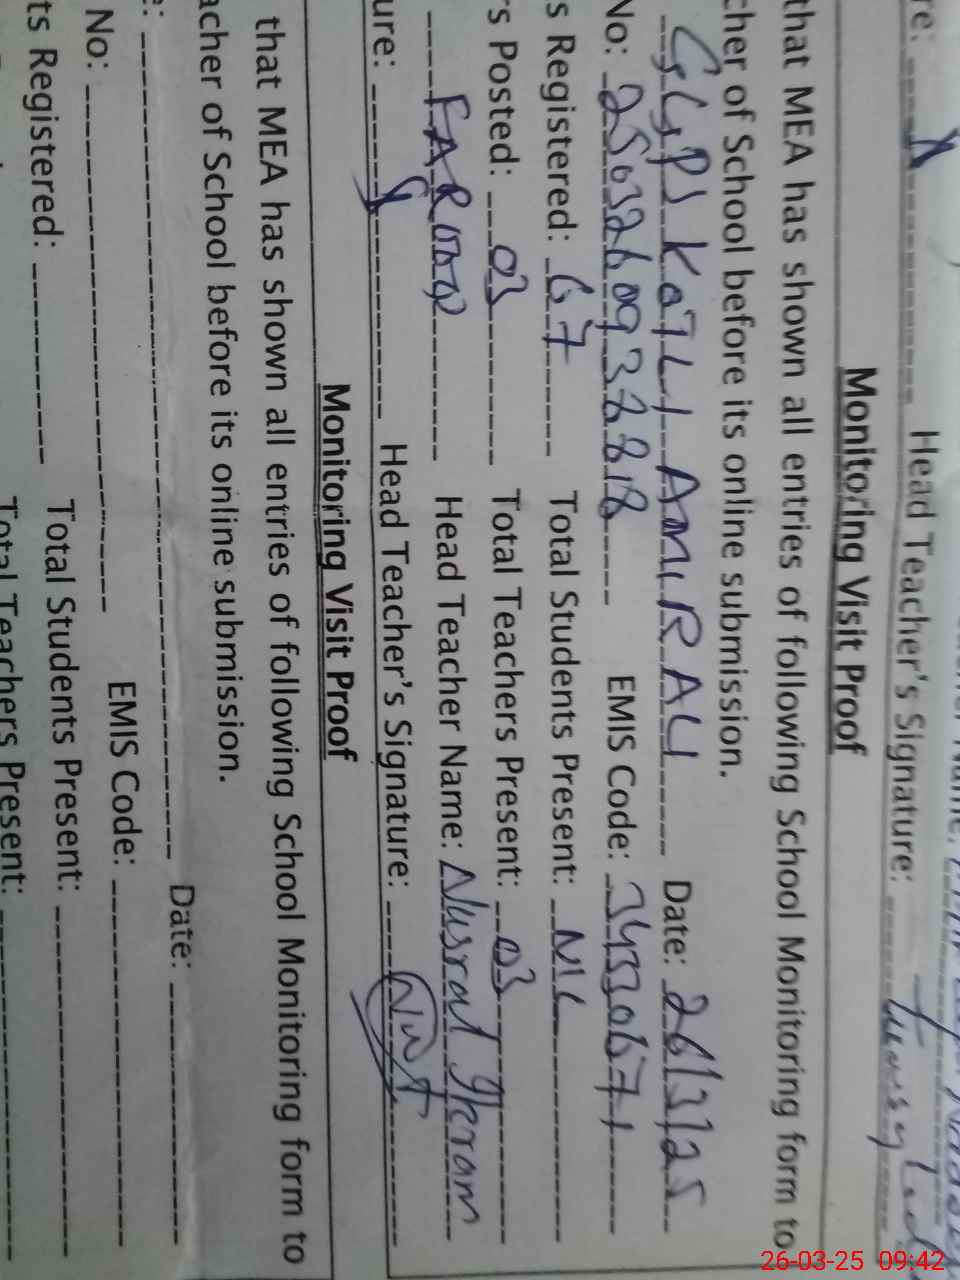 re: Head Teacher's Signature:
Monitoring Visit Proof
that MEA has shown all entries of following School Monitoring form to
cher of School before its online submission.
GGPS KOTLI AMIR ALI Date: 26/3/25
No: EMIS Code: 34330671
s Registered: 67 Total Students Present: NIL
s Posted: 03 Total Teachers Present: 03
FAROOQ Head Teacher Name: Nusrat Ikram
ure: Head Teacher's Signature:
Monitoring Visit Proof
that MEA has shown all entries of following School Monitoring form to
acher of School before its online submission.
e: Date:
No: EMIS Code:
ts Registered: Total Students Present:
Total Teachers Present:
26-03-25 09:42